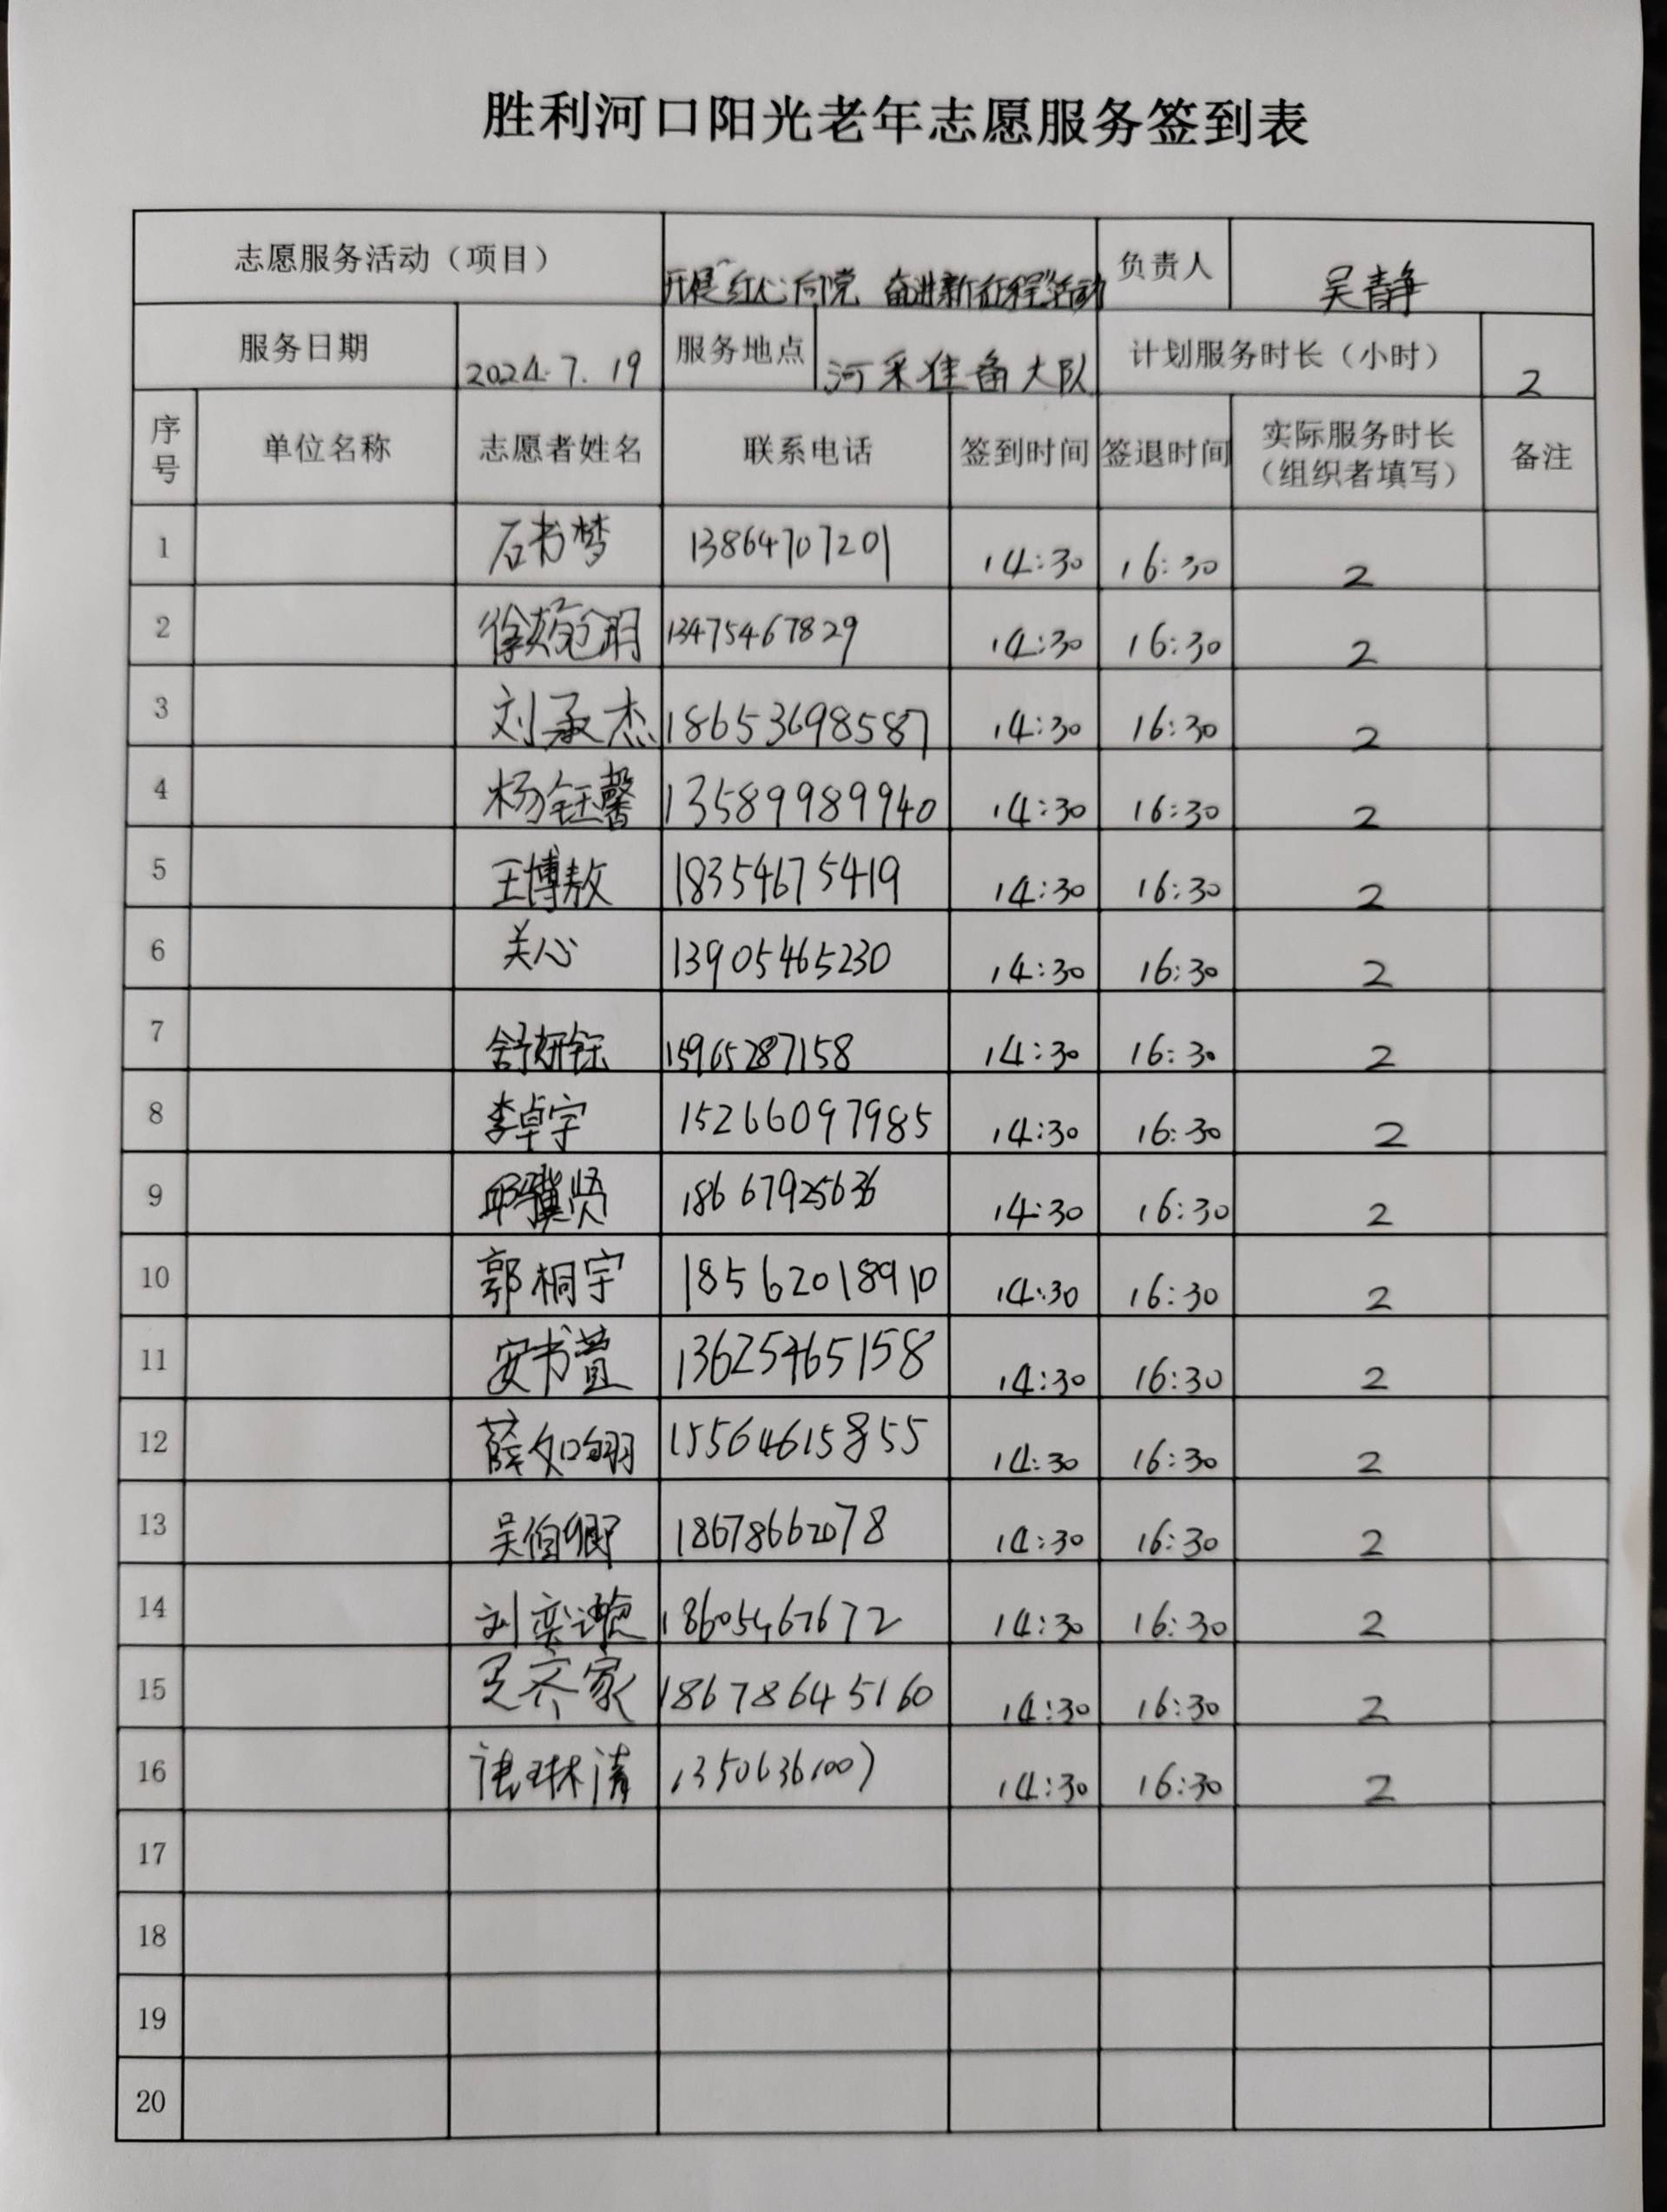 胜利河口阳光老年志愿服务签到表
志愿服务活动（项目） 开展“红心向党 奋进新征程”活动 负责人 吴静
服务日期 2024.7.19 服务地点 河采准备大队 计划服务时长（小时） 2
序号 单位名称 志愿者姓名 联系电话 签到时间 签退时间 实际服务时长（组织者填写） 备注
1 石书梦 13864707201 14:30 16:30 2
2 13475467829 14:30 16:30 2
3 刘承杰 18653698587 14:30 16:30 2
4 杨钰馨 13589989940 14:30 16:30 2
5 王博敖 18354675419 14:30 16:30 2
6 关心 13905465230 14:30 16:30 2
7 舒妍钰 15965287158 14:30 16:30 2
8 李卓宇 15266097985 14:30 16:30 2
9 18667925636 14:30 16:30 2
10 郭桐宇 18562018910 14:30 16:30 2
11 安书萱 13625465158 14:30 16:30 2
12 薛如翎 15564615855 14:30 16:30 2
13 吴伯卿 18678662078 14:30 16:30 2
14 18605467672 14:30 16:30 2
15 18678645160 14:30 16:30 2
16 14:30 16:30 2
17
18
19
20